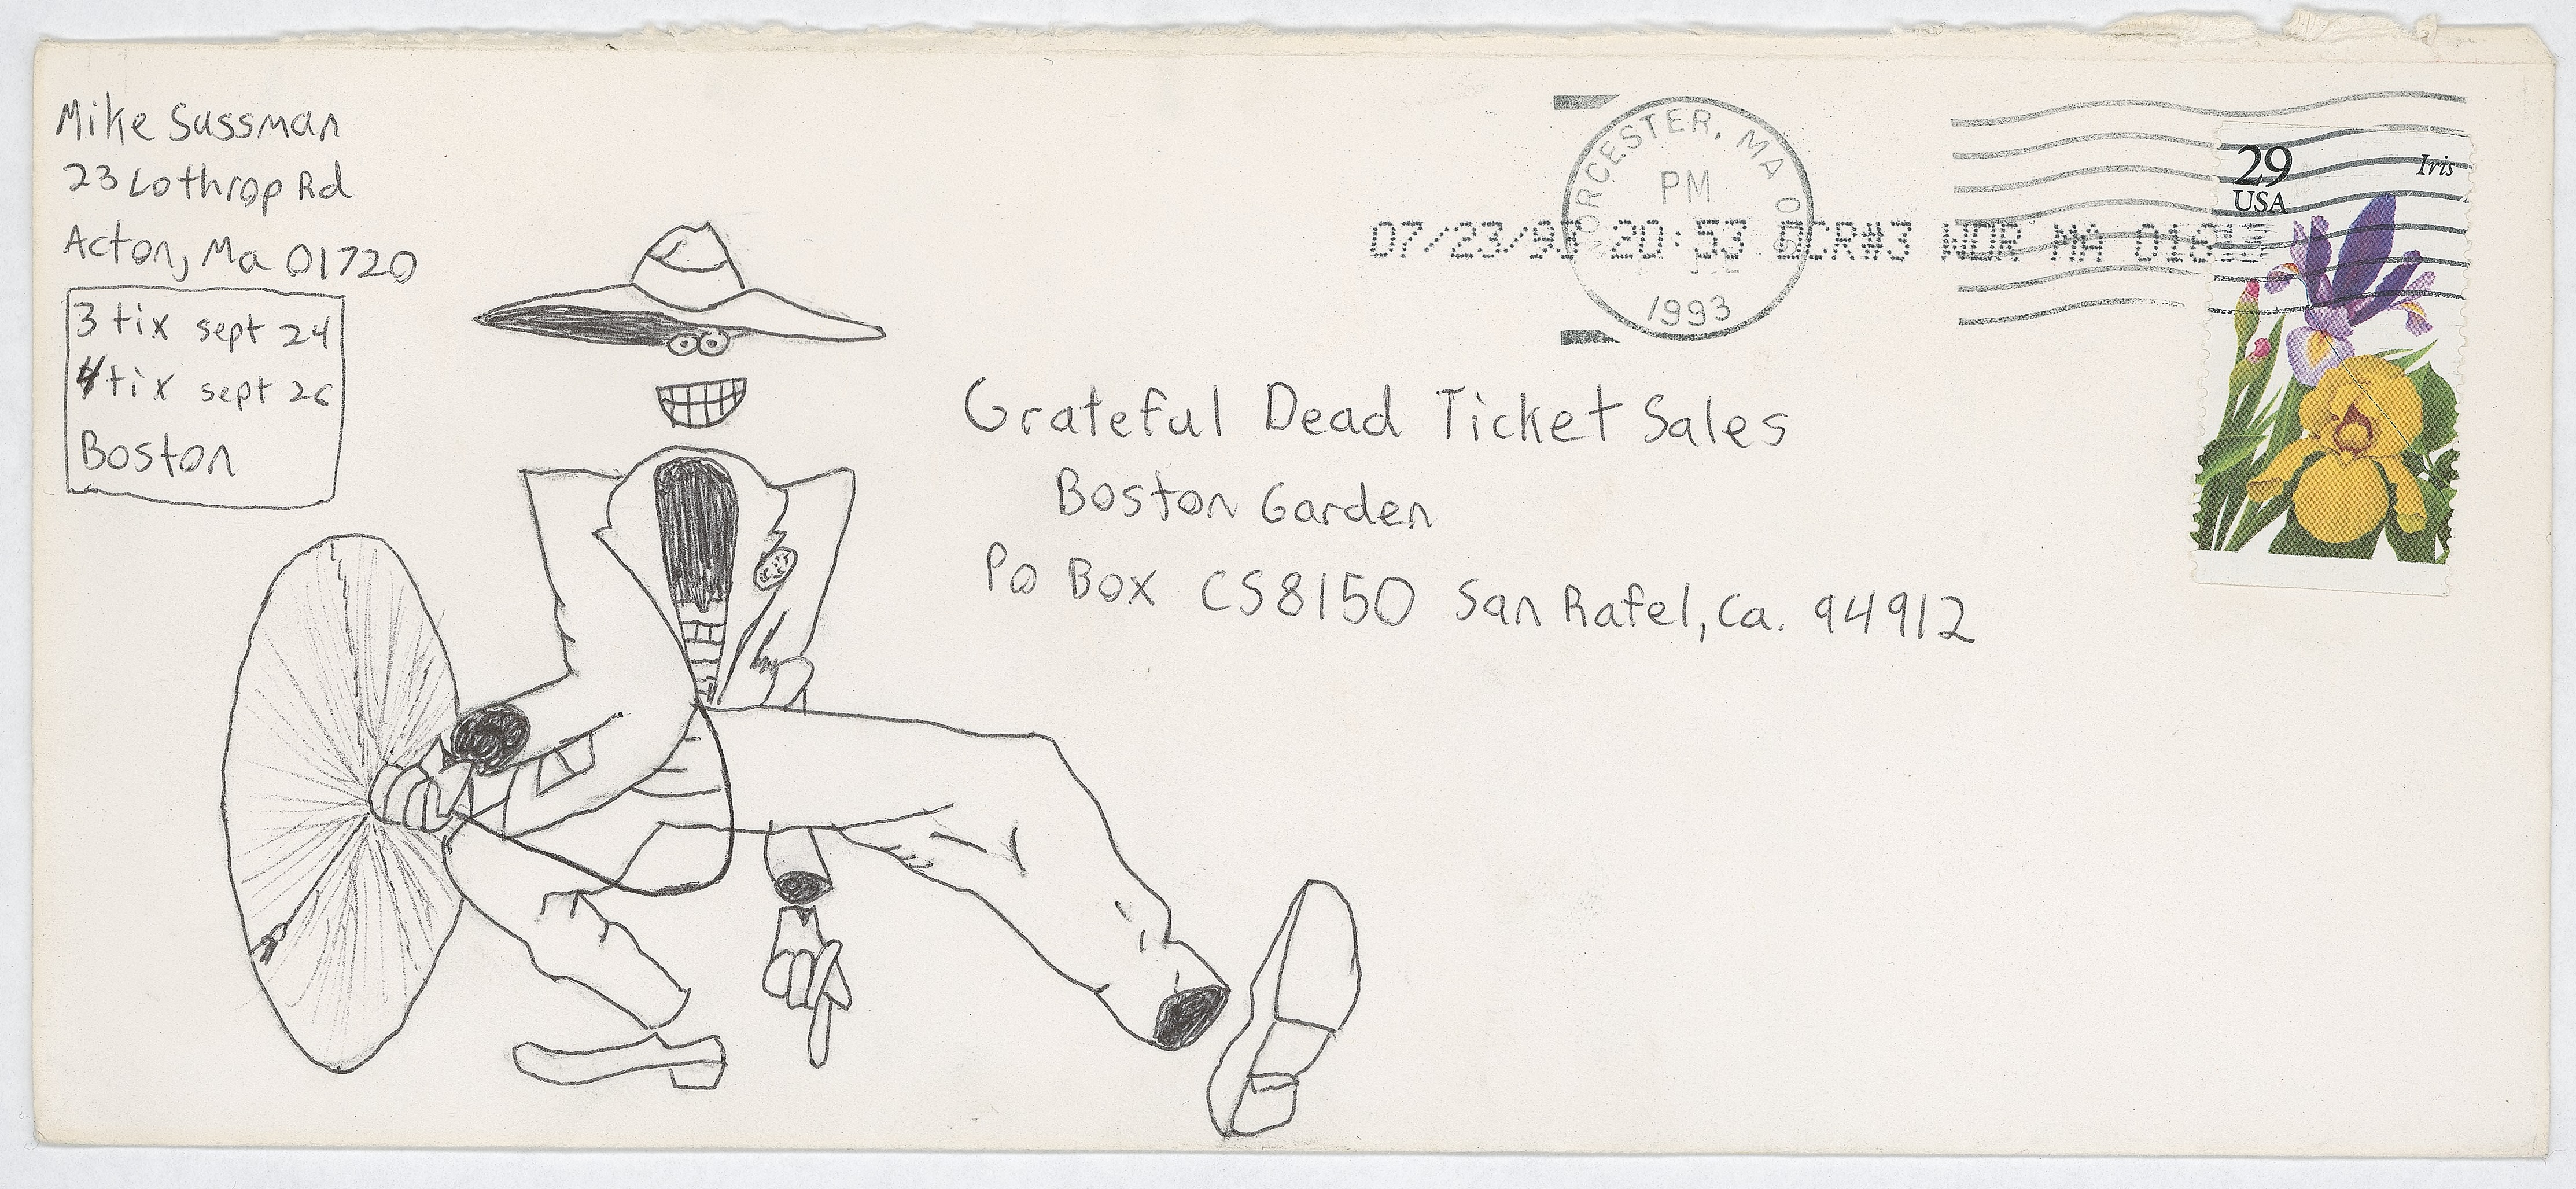 Mike Sussman
23 Lothrop Rd
Acton, Ma 01720
3 tix sept 24
4 tix sept 26
Boston
WORCESTER, MA
PM
1993
07/23/93 20:53 OCR#3 WOR MA
29
USA
Iris
Grateful Dead Ticket Sales
Boston Garden
Po Box CS8150 San Rafel, Ca. 94912